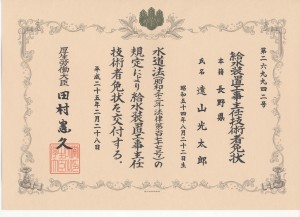 第二六九九四二号
給水装置工事主任技術者免状
本籍 長野県
氏名 遠山光太郎
昭和五十四年八月二十二日生
水道法(昭和三十二年法律第百七十七号)の
規定により給水装置工事主任
技術者免状を交付する。
平成二十五年二月二十八日
厚生労働大臣 田村憲久